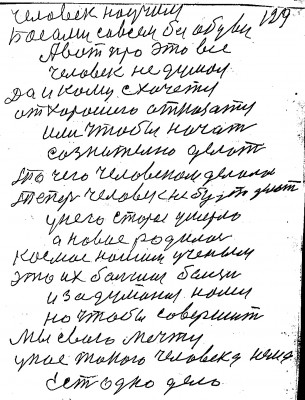 человек научил
129
босами совсем без обуви
А вот про это все
человек не думал
Да и кому схочету
от хорошего отказату
или чтобы начат
сознателно делат
что чего человеком делали
человек не будет делат
у него старе умерло
а новое родилос
космос нашим ученым
это их
и задумания наши
но чтобы совершит
мы свого мечту
у нас такого человека нема
ест одно дело